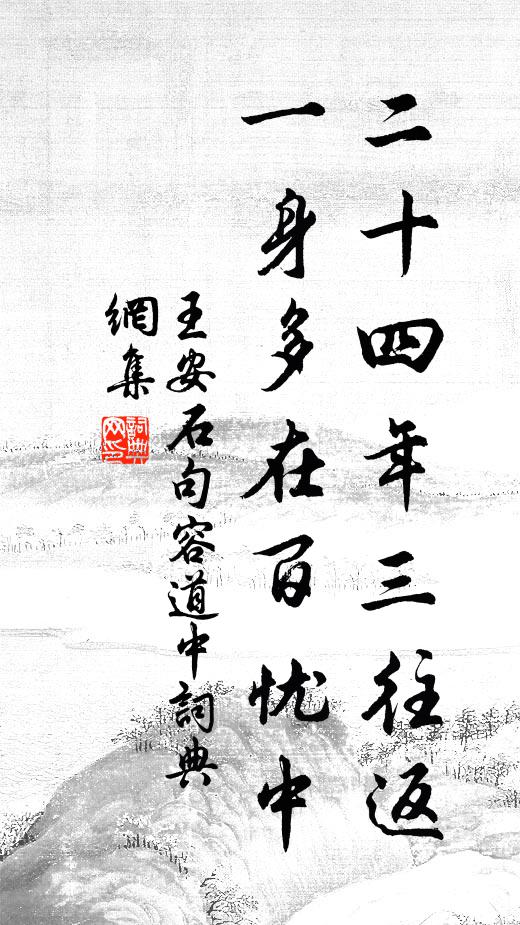 二十四年三往返
一身多在百忧中
王安石句容道中詞典
網集
詞典
网印